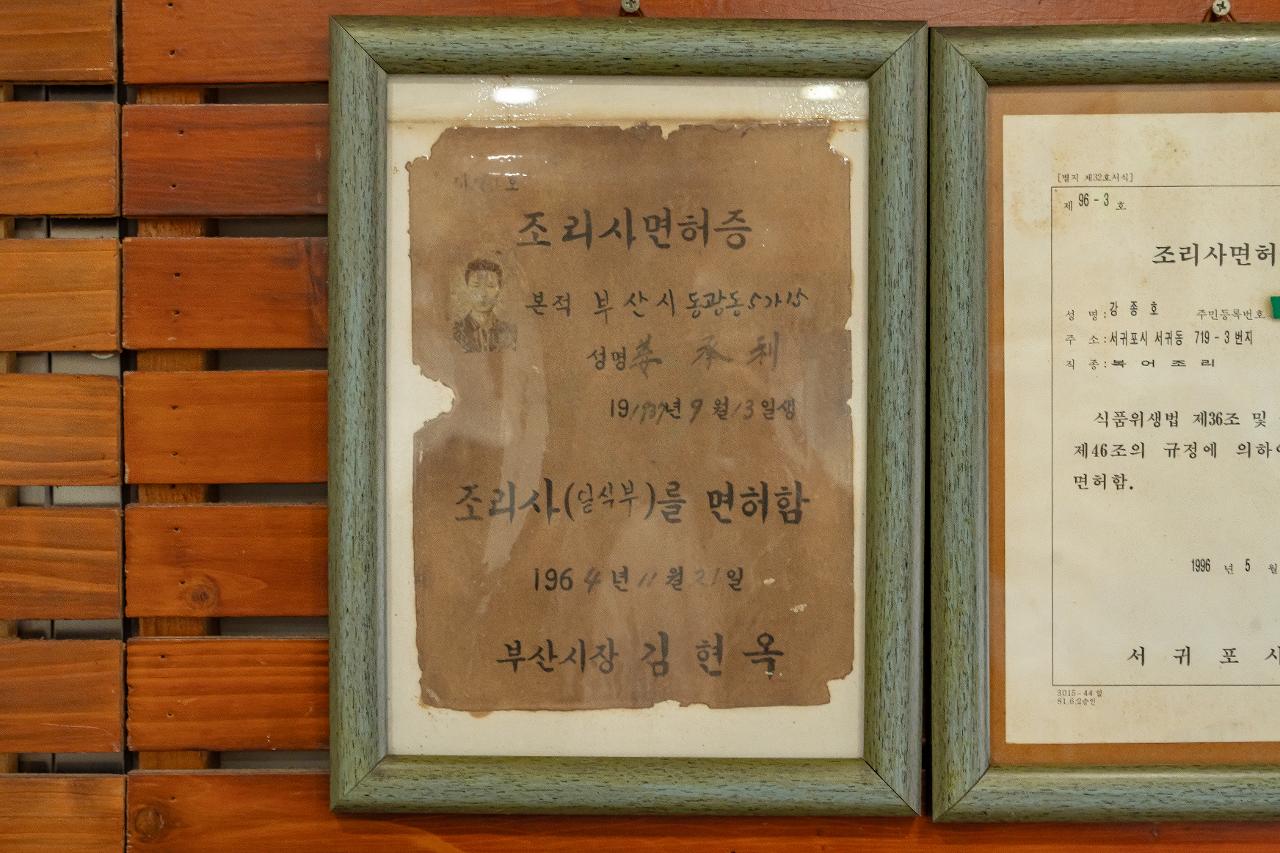 조리사면허증
본적 부산시 동광동5가15
성명 姜 承 利
19 1937년 9월 13일생
조리사(일식부)를 면허함
1964년 11월 21일
부산시장 김현옥
[별지 제32호서식]
제 96-3 호
조리사면허
성 명: 강종호 주민등록번호
주 소: 서귀포시 서귀동 719-3번지
직 종: 복어조리
식품위생법 제36조 및
제46조의 규정에 의하여
면허함.
1996 년 5 월
서귀포시
3015-44 일
81.6.2승인